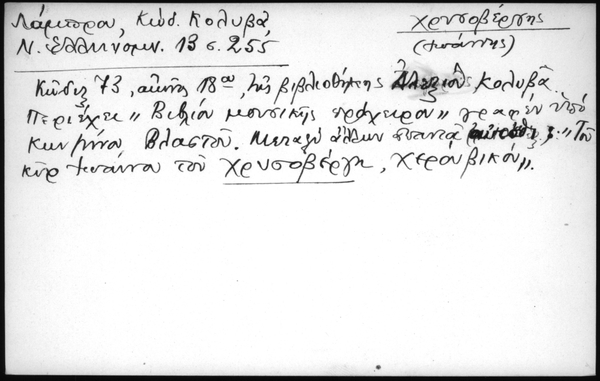 Λάμπρου, Κώδ. Κολυβᾶ
Ν. Ἑλληνομν. 13 σ. 255
Χρυσοβέργης
(Ἰωάννης)
Κῶδιξ 73, αἰῶνος 18ου, τῆς βιβλιοθήκης Ἀλεξίου Κολυβᾶ.
Περιέχει "Βιβλίον μουσικῆς πρόχειρον" γραφὲν ὑπό
Κωνστ/νου Βλαστοῦ. Μεταξὺ ἄλλων "Τοῦ
κὺρ Ἰωάννου τοῦ Χρυσοβέργη, χερουβικόν".